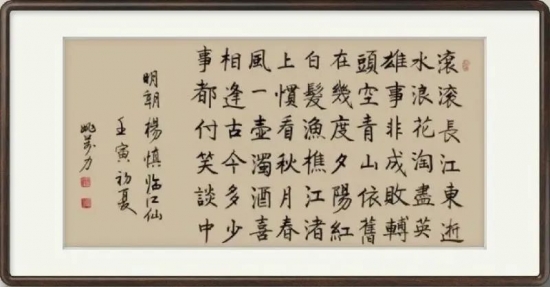 滾滾長江東逝
水浪花淘盡英
雄事非成敗轉
頭空青山依舊
在幾度夕陽紅
白髮漁樵江渚
上慣看秋月春
風一壺濁酒喜
相逢古今多少
事都付笑談中
明朝楊慎临江仙
壬寅初夏